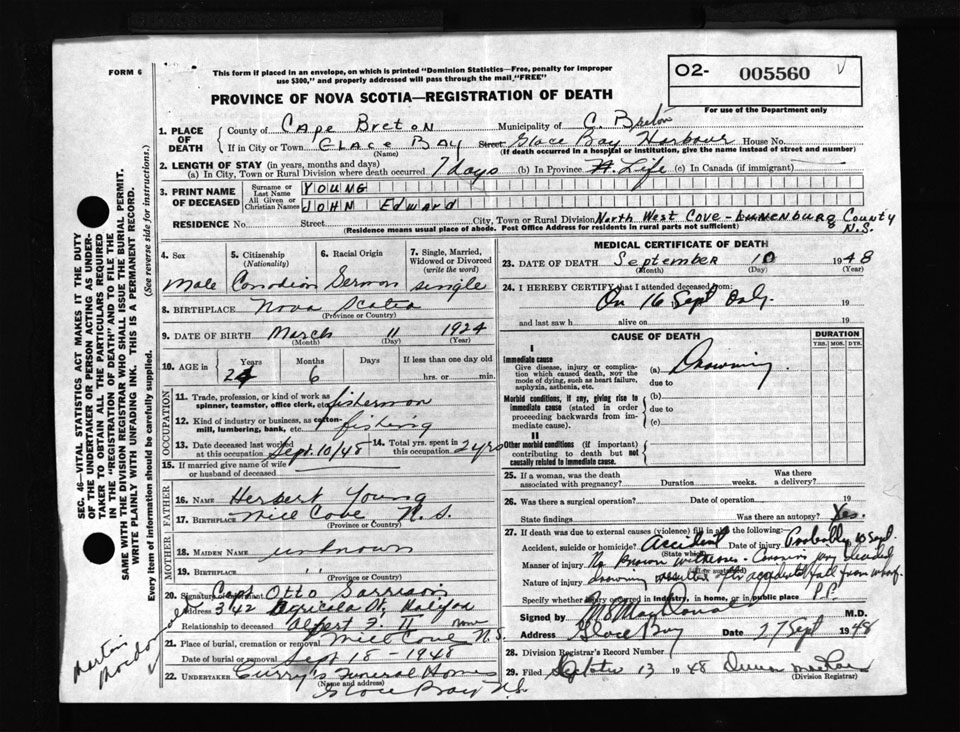 FORM 6
This form if placed in an envelope, on which is printed "Dominion Statistics—Free, penalty for improper
use $300," and properly addressed will pass through the mail "FREE"
O2- 005560
PROVINCE OF NOVA SCOTIA—REGISTRATION OF DEATH
For use of the Department only
1. PLACE OF DEATH
County of CAPE BRETON Municipality of C. Breton
If in City or Town GLACE BAY Street Glace Bay Harbour House No.
(Name) (If death occurred in a hospital or institution, give the name instead of street and number)
2. LENGTH OF STAY (in years, months and days)
(a) In City, Town or Rural Division where death occurred 7 days (b) In Province Life (c) In Canada (if immigrant)
3. PRINT NAME OF DECEASED
Surname or Last Name YOUNG
All Given or Christian Names JOHN Edward
RESIDENCE No. Street City, Town or Rural Division North West Cove - LUNENBURG County N.S.
(Residence means usual place of abode. Post Office Address for residents in rural parts not sufficient)
4. Sex
5. Citizenship (Nationality)
6. Racial Origin
7. Single, Married, Widowed or Divorced (write the word)
male Canadian German single
8. BIRTHPLACE Nova Scotia
(Province or Country)
9. DATE OF BIRTH March 11 1924
(Month) (Day) (Year)
10. AGE in Years Months Days If less than one day old
24 6 hrs. or min.
OCCUPATION
11. Trade, profession, or kind of work as spinner, teamster, office clerk, etc. fisherman
12. Kind of industry or business, as cotton mill, lumbering, bank, etc. fishing
13. Date deceased last worked at this occupation Sept. 10/48
14. Total yrs. spent in this occupation 2 yrs
15. If married give name of wife or husband of deceased
FATHER
16. NAME Herbert Young
17. BIRTHPLACE Mill Cove N.S.
(Province or Country)
MOTHER
18. MAIDEN NAME unknown
19. BIRTHPLACE " "
(Province or Country)
20. Signature of Capt Otto
Address 342 Agricola St. Halifax
Relationship to deceased
21. Place of burial, cremation or removal Mill Cove N.S.
Date of burial or removal Sept 18 - 1948
22. UNDERTAKER Curry's Funeral Home
(Name and address)
Glace Bay N.S.
MEDICAL CERTIFICATE OF DEATH
23. DATE OF DEATH September 10 1948
(Month) (Day) (Year)
24. I HEREBY CERTIFY that I attended deceased from:
On 16 Sept Only 19
and last saw h alive on 19
CAUSE OF DEATH
DURATION
YRS. MOS. DYS.
I
Immediate cause
Give disease, injury or complication which caused death, NOT the mode of dying, such as heart failure, asphyxia, asthenia, etc.
(a) Drowning
due to
Morbid conditions, if any, giving rise to immediate cause (stated in order proceeding backwards from immediate cause).
(b)
due to
(c)
II
Other morbid conditions (if important) contributing to death but not causally related to immediate cause.
25. If a woman, was the death associated with pregnancy? Duration weeks. Was there a delivery?
26. Was there a surgical operation? Date of operation 19
State findings Was there an autopsy? Yes.
27. If death was due to external causes (violence) fill in also the following:
Accident, suicide or homicide? Accident Date of injury Probably 10 Sept
(State which)
Manner of injury No known witnesses - Coroners jury decided
Nature of injury drowning resulted after accidental fall from wharf
Specify whether injury occurred in industry, in home, or in public place P.P.
Signed by MacDonald M.D.
Address Glace Bay Date 27 Sept 1948
28. Division Registrar's Record Number
29. Filed 13 1948
(Division Registrar)
SEC. 46—VITAL STATISTICS ACT MAKES IT THE DUTY
OF THE UNDERTAKER OR PERSON ACTING AS UNDER-
TAKER TO OBTAIN ALL THE PARTICULARS REQUIRED
IN THE "REGISTRATION OF DEATH" AND TO FILE THE
SAME WITH THE DIVISION REGISTRAR WHO SHALL ISSUE THE BURIAL PERMIT.
WRITE PLAINLY WITH UNFADING INK. THIS IS A PERMANENT RECORD.
Every item of information should be carefully supplied. (See reverse side for instructions.)